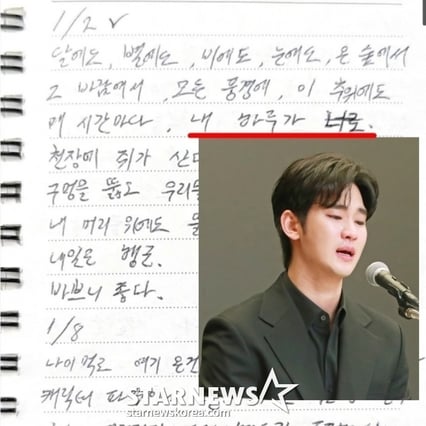 1/2 ✓
달에도, 별에도, 비에도, 눈에도, 온 숲에서
그 바람에서, 모든 풍경에, 이 추위에도
매 시간마다, 내 하루가 너로.
천장에 쥐가 산다
구멍을 뚫고 우리들
내 머리 위에도 뚫
내일은 행군.
바쁘니 좋다.
1/8
나이 먹고 여기 온건
캐릭터
STARNEWS
starnewskorea.com